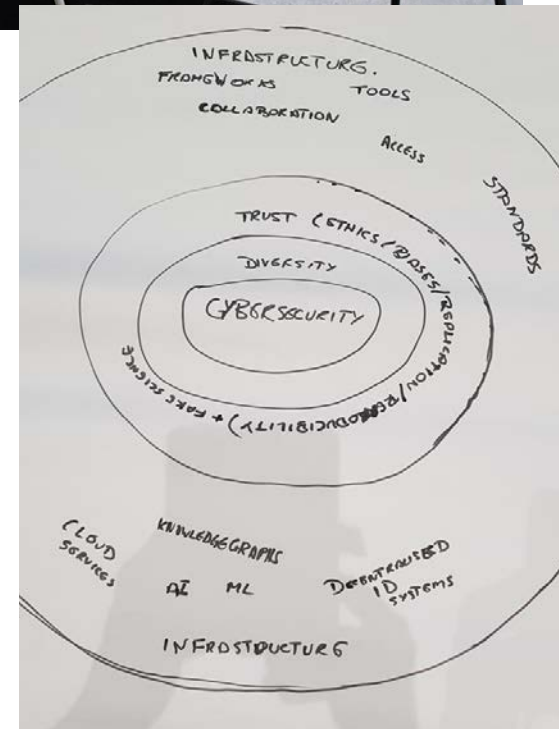 INFRASTRUCTURE.
FRAMEWORKS TOOLS
COLLABORATION
ACCESS
STANDARDS
TRUST (ETHICS/BIASES/REPLICATION/REPRODUCIBILITY) + FAKE SCIENCE
DIVERSITY
CYBERSECURITY
CLOUD
SERVICES
KNOWLEDGEGRAPHS
AI ML
DECENTRALISED
ID
SYSTEMS
INFRASTRUCTURE